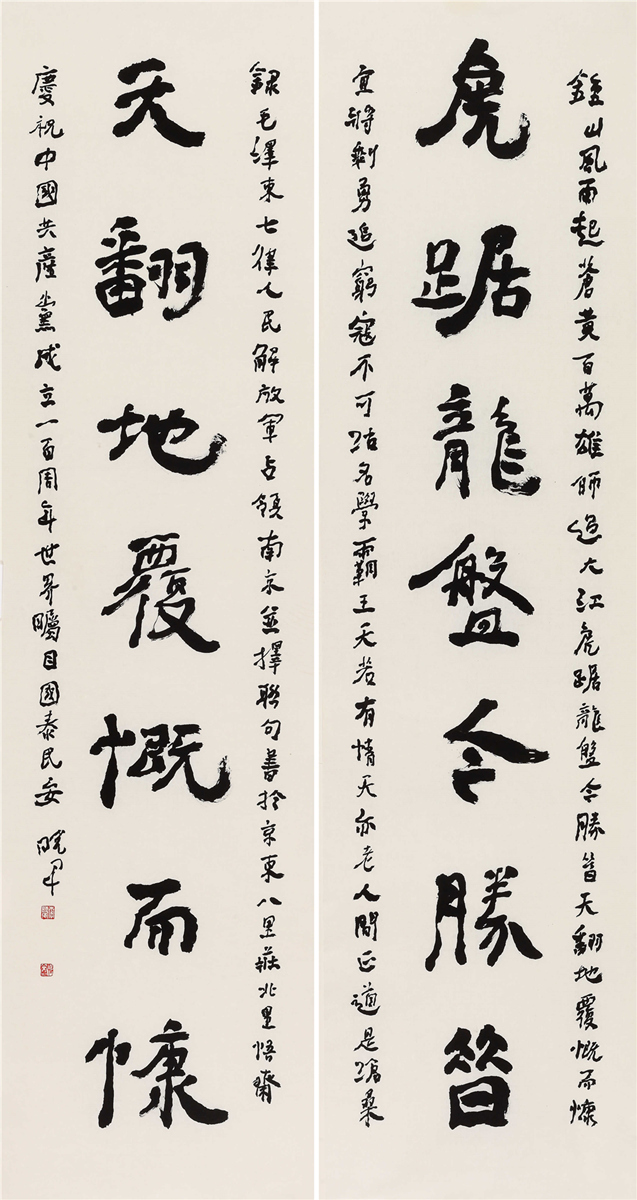 鐘山風雨起蒼黄百萬雄師過大江虎踞龍盤今勝昔天翻地覆慨而慷
虎踞龍盤今勝昔
宜將剩勇追窮寇不可沽名學霸王天若有情天亦老人間正道是滄桑
録毛澤東七律人民解放軍占領南京並擇聯句書於京東八里莊北里悟齋
天翻地覆慨而慷
慶祝中國共産黨成立一百周年世界矚目國泰民安